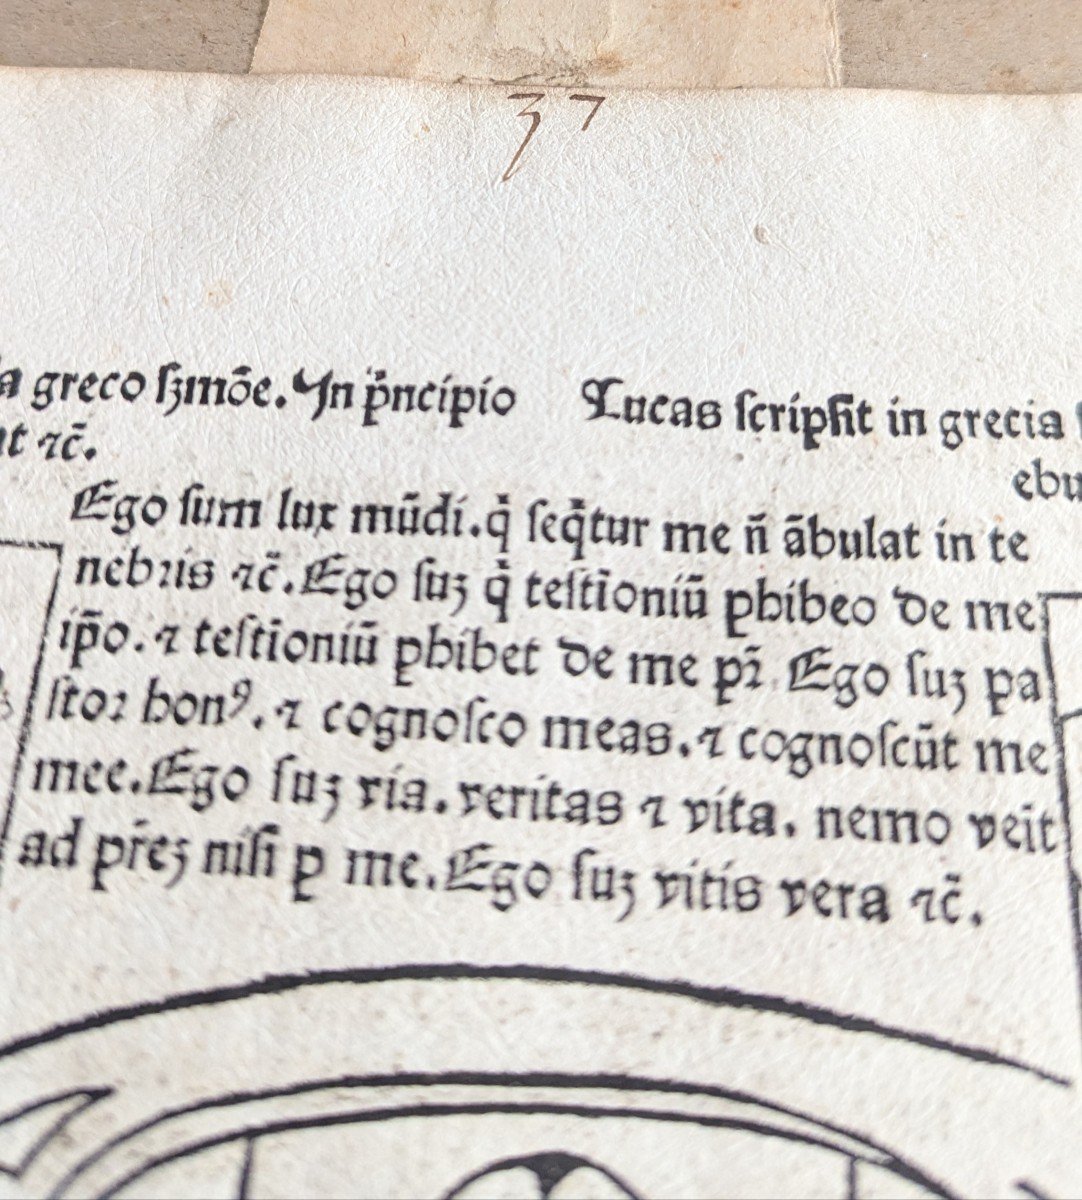 37
a greco ſꝫmōe. In pͥncipio
Lucas ſcripſit in grecia
t ⁊c̄.
ebu
Ego ſum lux mūdi. qͥ ſeqͥtur me n̄ ābulat in te
nebꝛis ⁊c̄. Ego ſuꝫ qͥ teſtīoniū ꝑhibeo de me
ip̄o. ⁊ teſtīoniū ꝑhibet de me pꝛ̄. Ego ſuꝫ pa
ſtoꝛ bonꝰ. ⁊ cognoſco meas. ⁊ cognoſcūt me
mee. Ego ſuꝫ via. veritas ⁊ vita. nemo veīt
ad pr̄eꝫ niſi ꝑ me. Ego ſuꝫ vitis vera ⁊c̄.